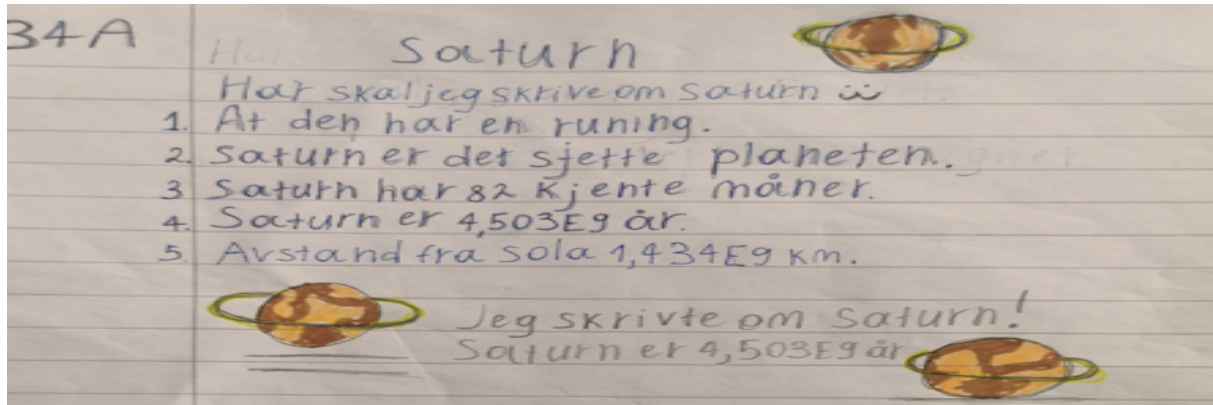 34A
Saturn
Har skal jeg skrive om saturn ü
1. At den har en runing.
2. Saturn er det sjette planeten.
3 Saturn har 82 kjente måner.
4. Saturn er 4,503E9 år.
5. Avstand fra sola 1,434E9 km.
Jeg skrivte om saturn!
Saturn er 4,503E9 år